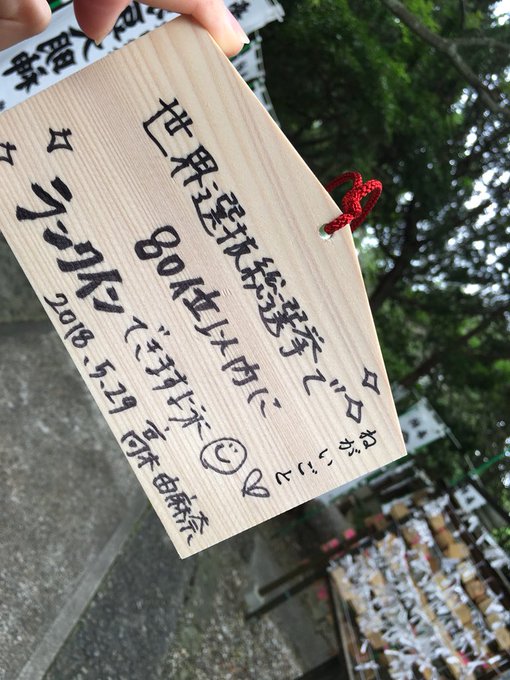 ねがいごと
世界選抜総選挙で
80位以内に
ランクイン
できますように
2018.5.29 高木由麻奈